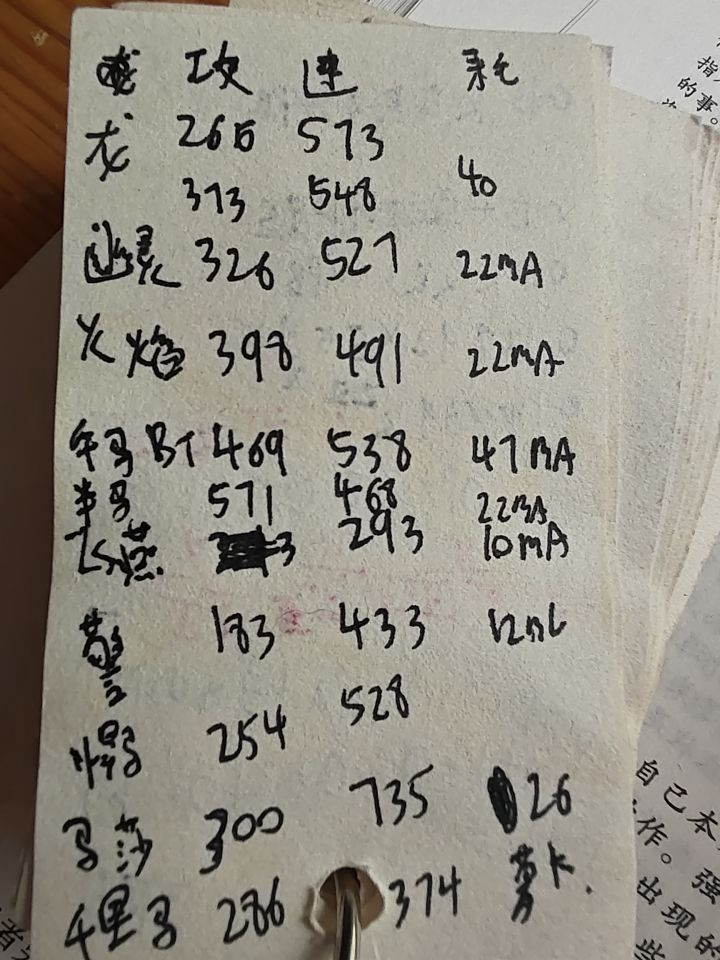 攻 速 耗
龙 265 573
373 548 40
326 527 22mA
火焰 398 491 22mA
半马BT 469 538 47mA
半马 571 468 22mA
飞燕 293 10mA
警 183 433 12mA
爆 254 528
马莎 300 735 26
千里马 286 374 卡.
指
的事。
自己本
作。强
出现的
些